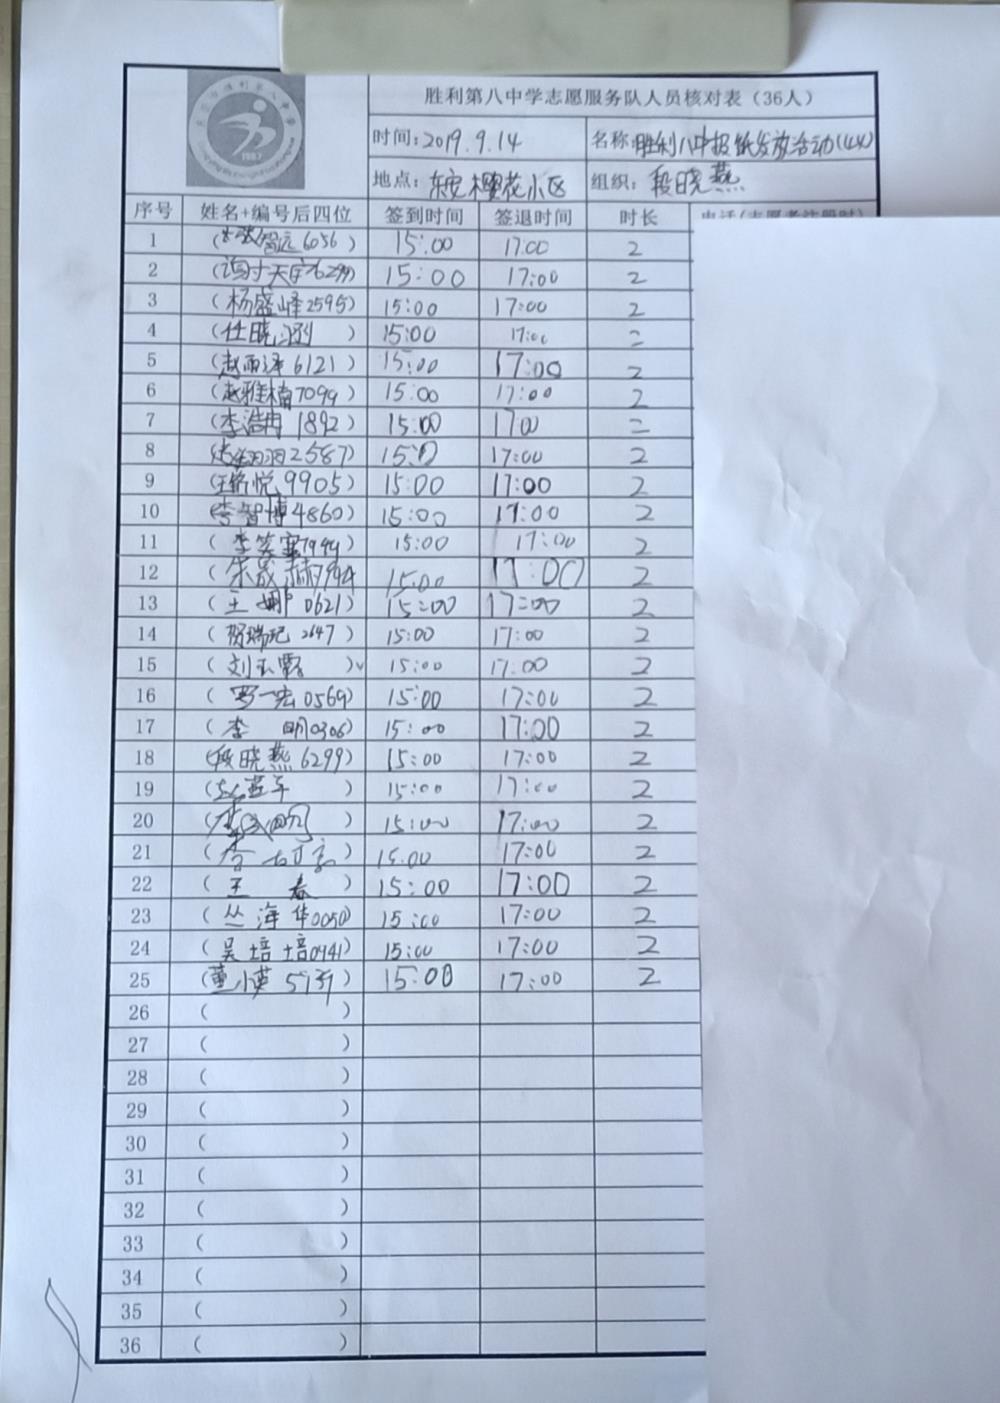 胜利第八中学志愿服务队人员核对表（36人）
时间：2019.9.14 名称：胜利八中报纸发放活动(44)
地点：东安樱花小区 组织：段晓燕
序号 姓名+编号后四位 签到时间 签退时间 时长
1 (智远6056) 15:00 17:00 2
2 (天宇6299) 15:00 17:00 2
3 (杨盛峰2595) 15:00 17:00 2
4 (任晓涵 ) 15:00 17:00 2
5 (赵雨泽6121) 15:00 17:00 2
6 (赵雅楠7099) 15:00 17:00 2
7 (李浩冉1892) 15:00 17:00 2
8 (2587) 15:00 17:00 2
9 (王铭悦9905) 15:00 17:00 2
10 (李智博4860) 15:00 17:00 2
11 (李笑寒7994) 15:00 17:00 2
12 (朱晟赫7944 15:00 17:00 2
13 (王娜0621) 15:00 17:00 2
14 (贺瑞妃2647) 15:00 17:00 2
15 (刘玉露 )v 15:00 17:00 2
16 (罗一宏0569) 15:00 17:00 2
17 (李明0306) 15:00 17:00 2
18 (段晓燕6299) 15:00 17:00 2
19 ( ) 15:00 17:00 2
20 ( ) 15:00 17:00 2
21 ( ) 15:00 17:00 2
22 (王春 ) 15:00 17:00 2
23 (丛海华0050) 15:00 17:00 2
24 (吴培培0941) 15:00 17:00 2
25 (董小英5737) 15:00 17:00 2
26 ( )
27 ( )
28 ( )
29 ( )
30 ( )
31 ( )
32 ( )
33 ( )
34 ( )
35 ( )
36 ( )